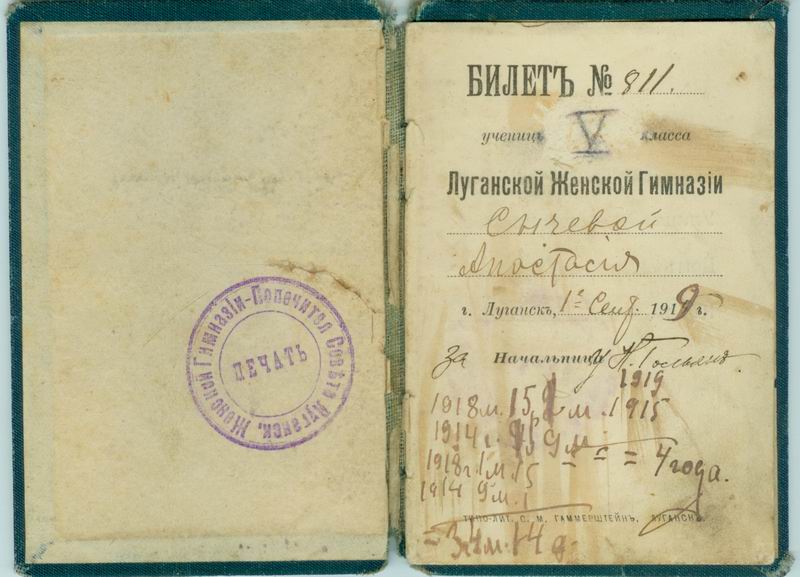 ПЕЧАТЬ
Женской Гимназіи-Попечител Совѣта Луганск.
БИЛЕТЪ № 811.
ученицы V класса
Луганской Женской Гимназіи
Сычевой
Анастасія
г. Луганскъ, 1го Сент. 1919 г.
за Начальницу
1919
1918 м. 15 м. 1915
1914 г. 15 9 м.
= 4 года.
1918 г. 1 м. 15
1914 9 м. 1
ТИПО-ЛИТ. С. М. ГАММЕРШТЕЙНЪ, ЛУГАНСКЪ.
= 3 г. 4 м. 14 д.